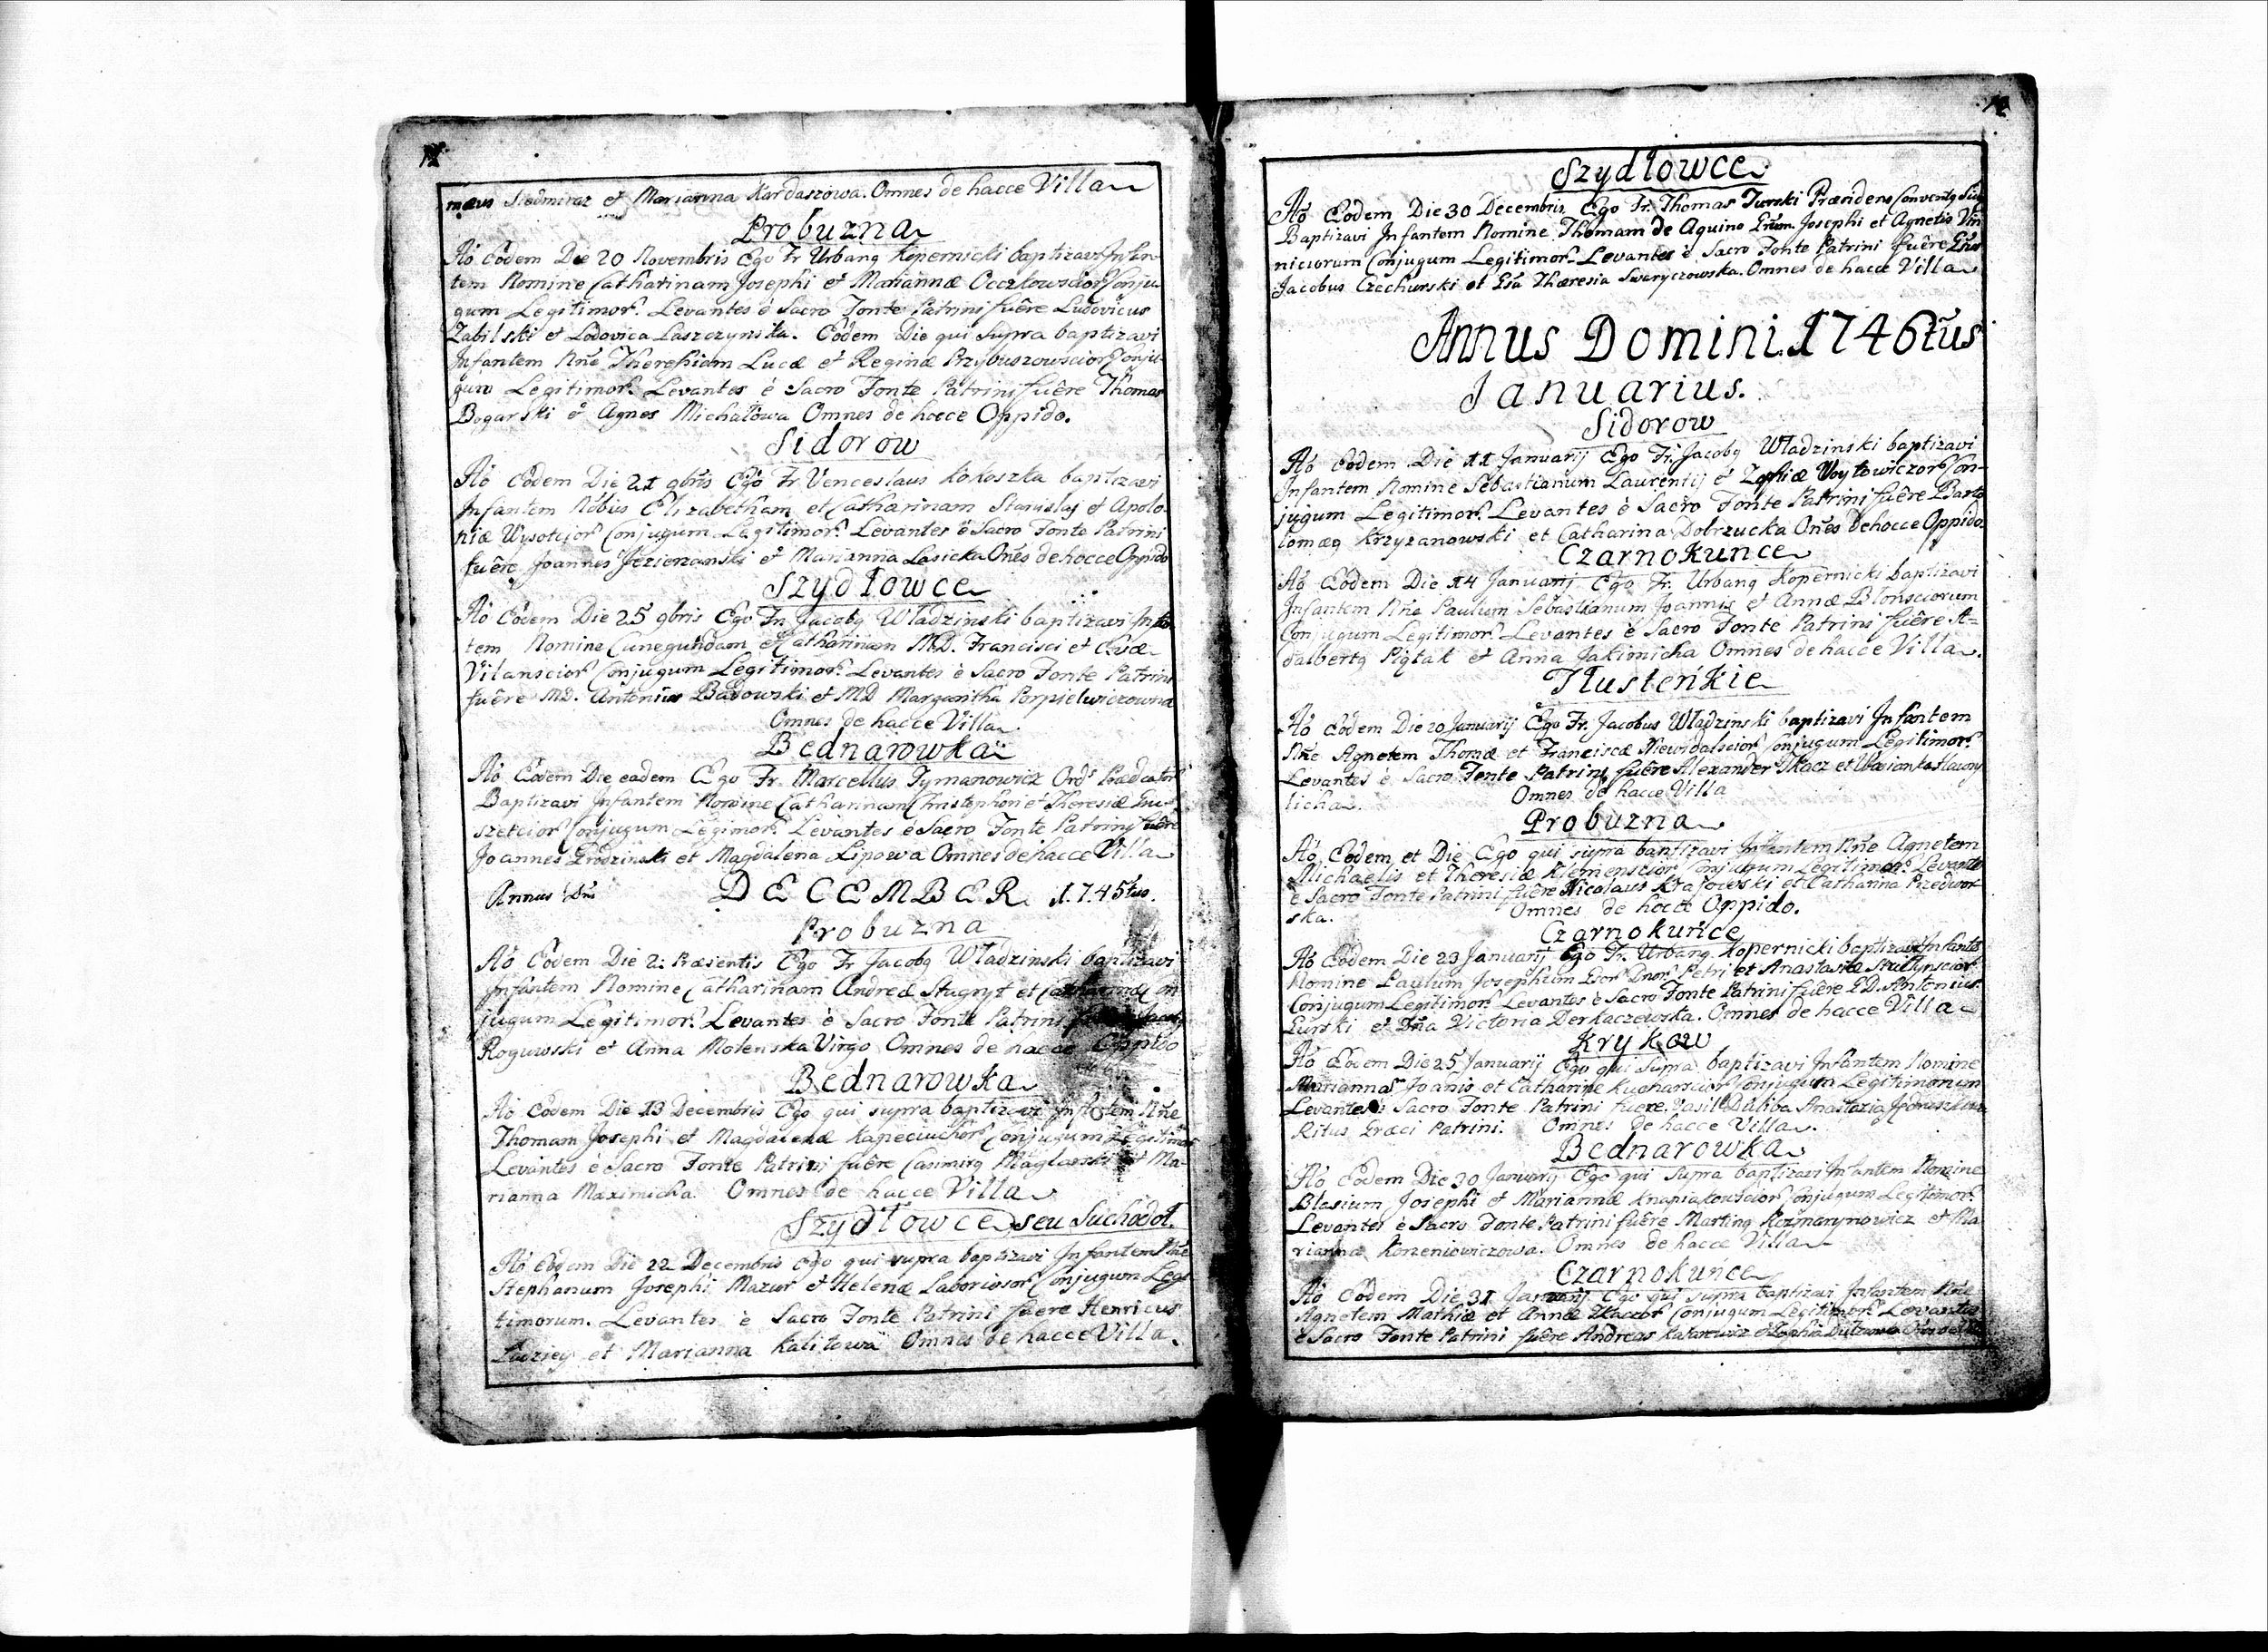 12
mæus Siedmiraz et Marianna Kardaszowa. Omnes de hacce Villa
Probuzna
Aõ Eodem Die 20 Novembris Ego Fr Urbang Kopernicki baptizavi Infan-
tem Nomine Catharinam Josephi et Mariannæ Conju-
gum Legitimor. Levantes è Sacro Fonte Patrini fuêre Ludovicus
Zabilski et Lodovica Laszczynska. Eodem Die qui Supra baptizavi
Infantem Nñe Theresiam Lucæ et Reginæ Przybuszowscior Conju-
gum Legitimor. Levantes è Sacro Fonte Patrini fuêre Thomas
Bogarski et Agnes Michałowa Omnes de hocce Oppido.
Sidorow
Aõ Eodem Die 21 gbris Ego Fr Venceslaus Kokoszka baptizavi
Infantem Nõbus Elizabetham et Catharinam Stanislaj et Apolo-
niæ Wysotcior Conjugum Legitimor. Levantes è Sacro Fonte Patrini
fuêre Joannes Jezierzanski et Marianna Lasicka Oñes de hocce Oppido
Szydłowce
Aõ Eodem Die 25 gbris Ego Fr Jacobg Władzinski baptizavi Infan
tem Nomine Cunegundam et Catharinam M.D. Francisci et Evæ
Vilanscior Conjugum Legitimor. Levantes è Sacro Fonte Patrini
fuêre MD. Antonius Badowski et MD Margaritha
Omnes de hacce Villa.
Bednarowka
Aõ Eodem Die eadem Ego Fr. Marcellus Tymanowicz Ord.
Baptizavi Infantem Nomine Catharinam Christophori et Theresiæ
Conjugum Legimor. Levantes è Sacro Fonte Patrini fuêre
Joannes Grodzinski et Magdalena Lipowa Omnes de hacce Villa
Annus Dñi DECEMBER 1745tus.
Probuzna
Aõ Eodem Die 2: Præsentis Ego Fr Jacobg Władzinski baptizavi
Infantem Nomine Catharinam Andreæ Stugryt et Con
jugum Legitimor. Levantes è Sacro Fonte Patrini
Roguwski et Anna Molenska Virgo Omnes de hacce Oppido
Bednarowka
Aõ Eodem Die 13 Decembris Ego qui supra baptizavi Infantem Nñe
Thomam Josephi et Magdalenæ Kapeciuchor Conjugum Legitimor
Levantes è Sacro Fonte Patrini fuêre Casimirg et Ma-
rianna Maximicha Omnes de hacce Villa
Szydłowce seu Suchodoł.
Aõ Eodem Die 22 Decembris Ego qui supra baptizavi Infantem Nñe
Stephanum Josephi Mazur et Helenæ Laboriosor Conjugum Legi
timorum. Levantes è Sacro Fonte Patrini fuere Henricus
et Marianna Kalitowa Omnes de hacce Villa.
Szydłowce
Aõ Eodem Die 30 Decembris Ego Fr. Thomas Turski Præsidens Conventg
Baptizavi Infantem Nomine Thomam de Aquino Josephi et Agnetis Vin
niciorum Conjugum Legitimor. Levantes è Sacro Fonte Patrini fuêre
Jacobus Czechurski et Theresia Swaryczowska. Omnes de hacce Villa
Annus Domini 1746tus
Januarius.
Sidorow
Aõ Eodem Die 11 Januarij Ego Fr. Jacobg Władzinski baptizavi
Infantem Nomine Sebastianum Laurentij et Zophiæ Woytowiczor Con-
jugum Legitimor. Levantes è Sacro Fonte Patrini fuêre Barto
lomæg Krzyzanowski et Catharina Dobrzucka Oñes de hocce Oppido.
Czarnokunce
Aõ Eodem Die 14 Januarij Ego Fr. Urbang Kopernicki baptizavi
Infantem Nñe Paulum Sebastianum Joannis et Annæ Blonsciorum
Conjugum Legitimor. Levantes è Sacro Fonte Patrini fuêre A=
dalbertg Pigtak et Anna Jakimicha Omnes de hacce Villa.
Tłusteńkie
Aõ Eodem Die 20 Januarij Ego Fr. Jacobus Władzinski baptizavi Infantem
Nñe Agnetem Thomæ et Franciscæ Niewidalscior Conjugum Legitimor.
Levantes è Sacro Fonte Patrini fuêre Alexander Tkacz et
licha. Omnes de hacce Villa
Probuzna
Aõ Eodem et Die Ego qui supra baptizavi Infantem Nñe Agnetem
Michaelis et Theresiæ Klemenscior Conjugum Legitimor. Levantes
è Sacro Fonte Patrini fuêre Nicolaus Krajowski et Catharina Przedwor
ska. Omnes de hocce Oppido.
Czarnokuńce
Aõ Eodem Die 23 Januarij Ego Fr. Urbang Kopernicki baptizavi Infante
Nomine Paulum Josephum Dnor Petri et Anastasiæ
Conjugum Legitimor. Levantes è Sacro Fonte Patrini fuêre Antonius
Gurski et Dña Victoria Derkaczewska. Omnes de hacce Villa
Krykow
Aõ Eodem Die 25 Januarij Ego qui Supra baptizavi Infantem Nomine
Mariannam Joanis et Catharinæ Conjugum Legitimorum
Levantes è Sacro Fonte Patrini fuere Vasil Daliba Anastazia
Ritus Græci Patrini. Omnes de hacce Villa.
Bednarowka
Aõ Eodem Die 30 Januarij Ego qui Supra baptizavi Infantem Nomine
Blasium Josephi et Mariannæ Knapiakowscior Conjugum Legitimor.
Levantes è Sacro Fonte Patrini fuêre Marting Rozmarynowicz et Ma
rianna Korzeniowiczowa. Omnes de hacce Villa
Czarnokunce
Aõ Eodem Die 31 Januarij Ego qui Supra baptizavi Infantem Nñe
Agnetem Mathiæ et Annæ Tkaczor Conjugum Legitimor. Levantes
è Sacro Fonte Patrini fuêre Andreas et Zophia